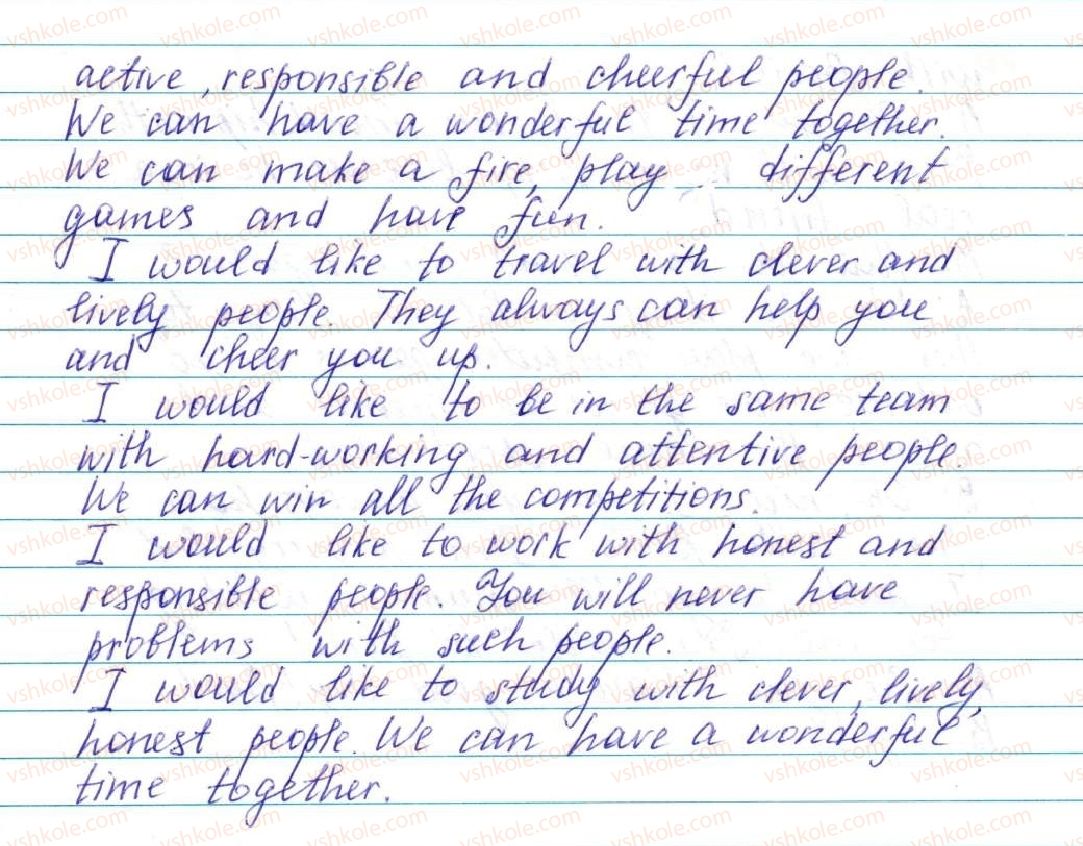 active, responsible and cheerful people.
We can have a wonderful time together.
We can make a fire, play different
games and have fun.
I would like to travel with clever and
lively people. They always can help you
and cheer you up.
I would like to be in the same team
with hard-working and attentive people.
We can win all the competitions.
I would like to work with honest and
responsible people. You will never have
problems with such people.
I would like to study with clever, lively,
honest people. We can have a wonderful
time together.